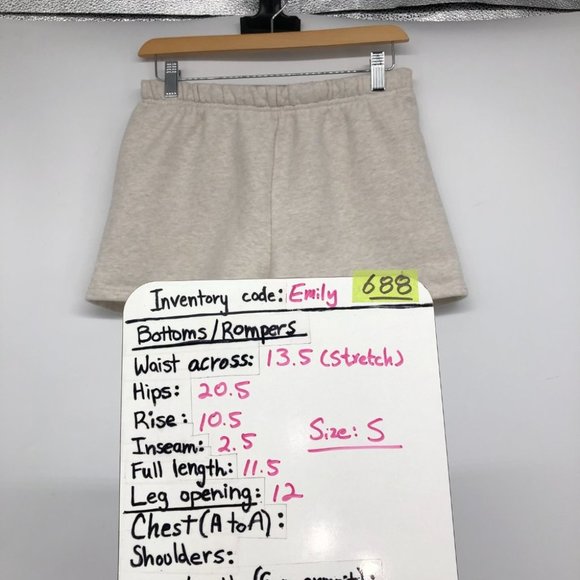 Inventory code: Emily 688
Bottoms/Rompers
Waist across: 13.5 (Stretch)
Hips: 20.5
Rise: 10.5
Size: S
Inseam: 2.5
Full length: 11.5
Leg opening: 12
Chest (A to A):
Shoulders: